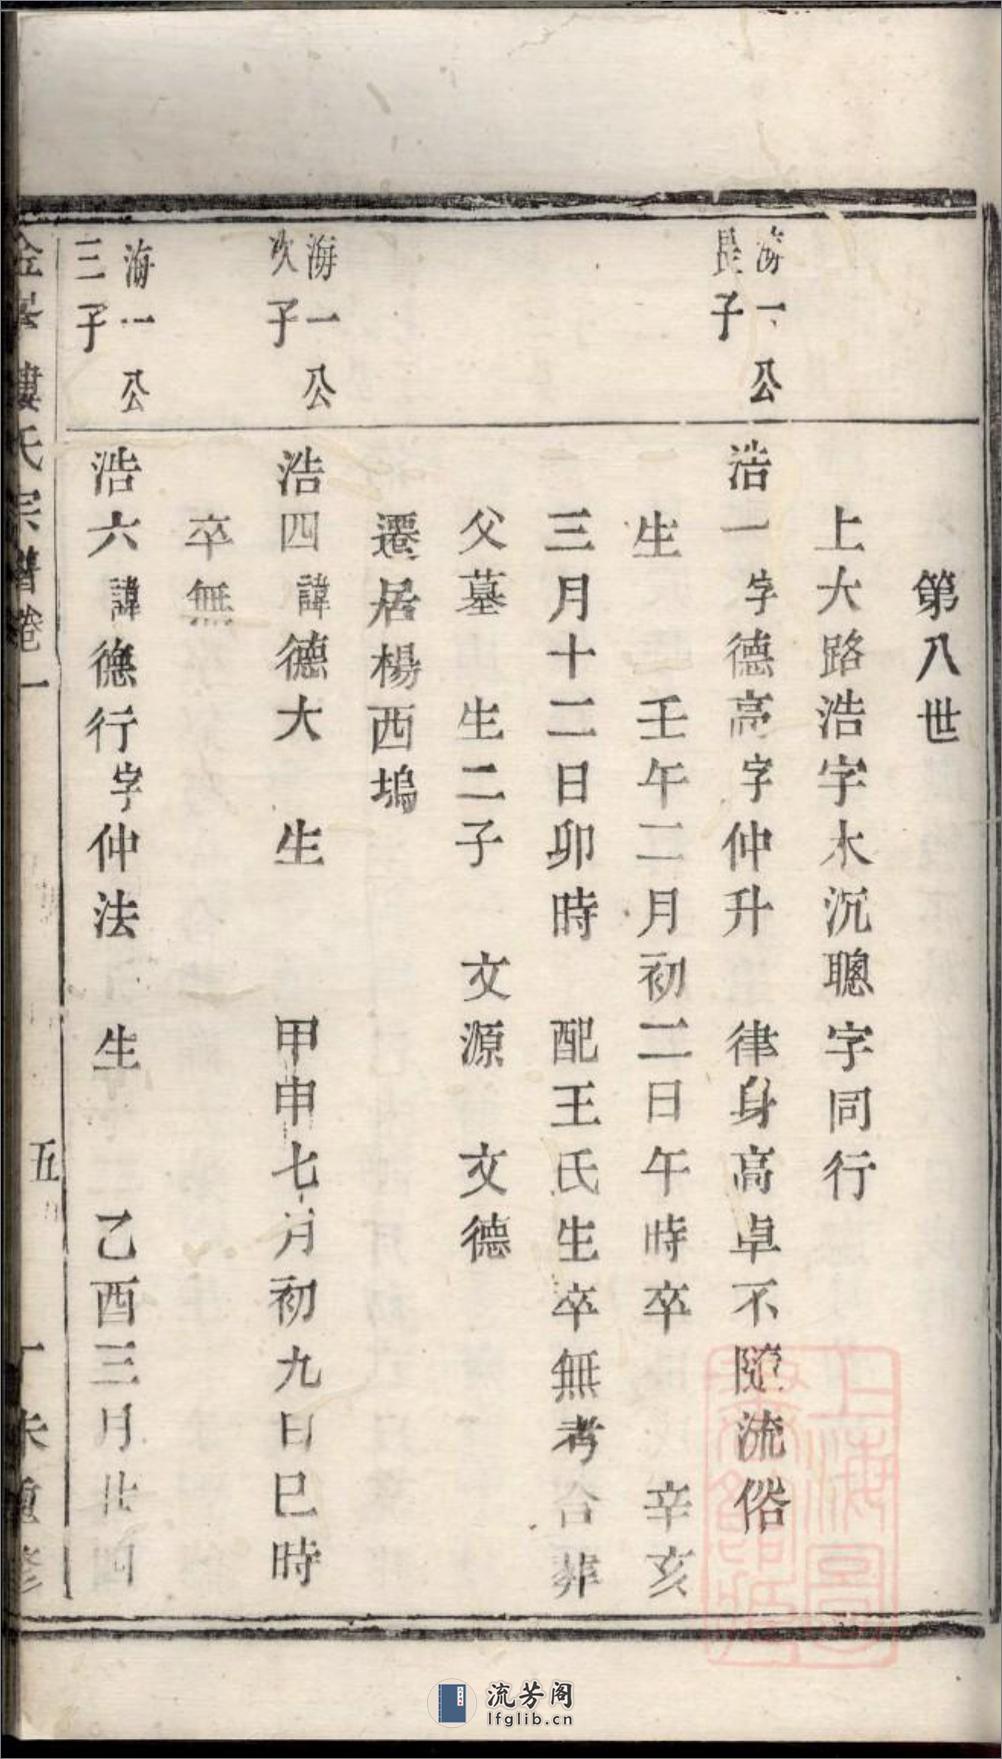 第八世
上大路浩字木沉聰字同行
海一公
長子
浩一字德高字仲升 律身高卓不隨流俗
生 壬午二月初二日午時卒 辛亥
三月十二日卯時 配王氏生卒無考合葬
父墓 生二子 文源 文德
遷居楊西塢
海一公
次子
浩四諱德大 生 甲申七月初九日巳時
卒無
海一公
三子
浩六諱德行字仲法 生 乙酉三月廿四
婁氏宗譜卷一
五
丁未重修
上海圖
流芳阁
lfglib.cn